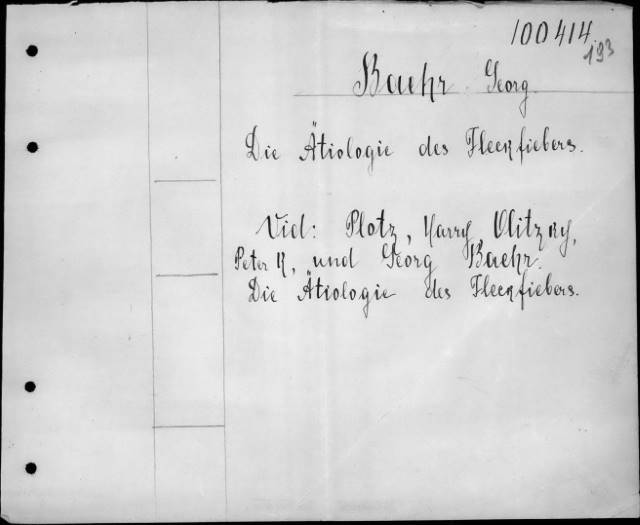 100414
193
Baehr Georg
Die Ätiologie des Fleckfiebers.
Vid: Plotz, Harry Olitzky,
Peter K, und Georg Baehr.
Die Ätiologie des Fleckfiebers.